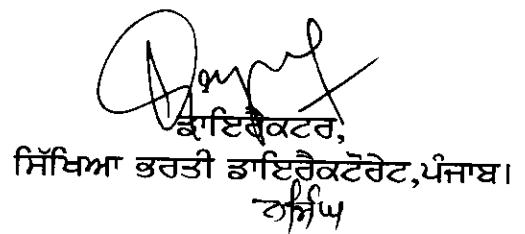 ਡਾਇਰੈਕਟਰ,
ਸਿੱਖਿਆ ਭਰਤੀ ਡਾਇਰੈਕਟੋਰੇਟ,ਪੰਜਾਬ।